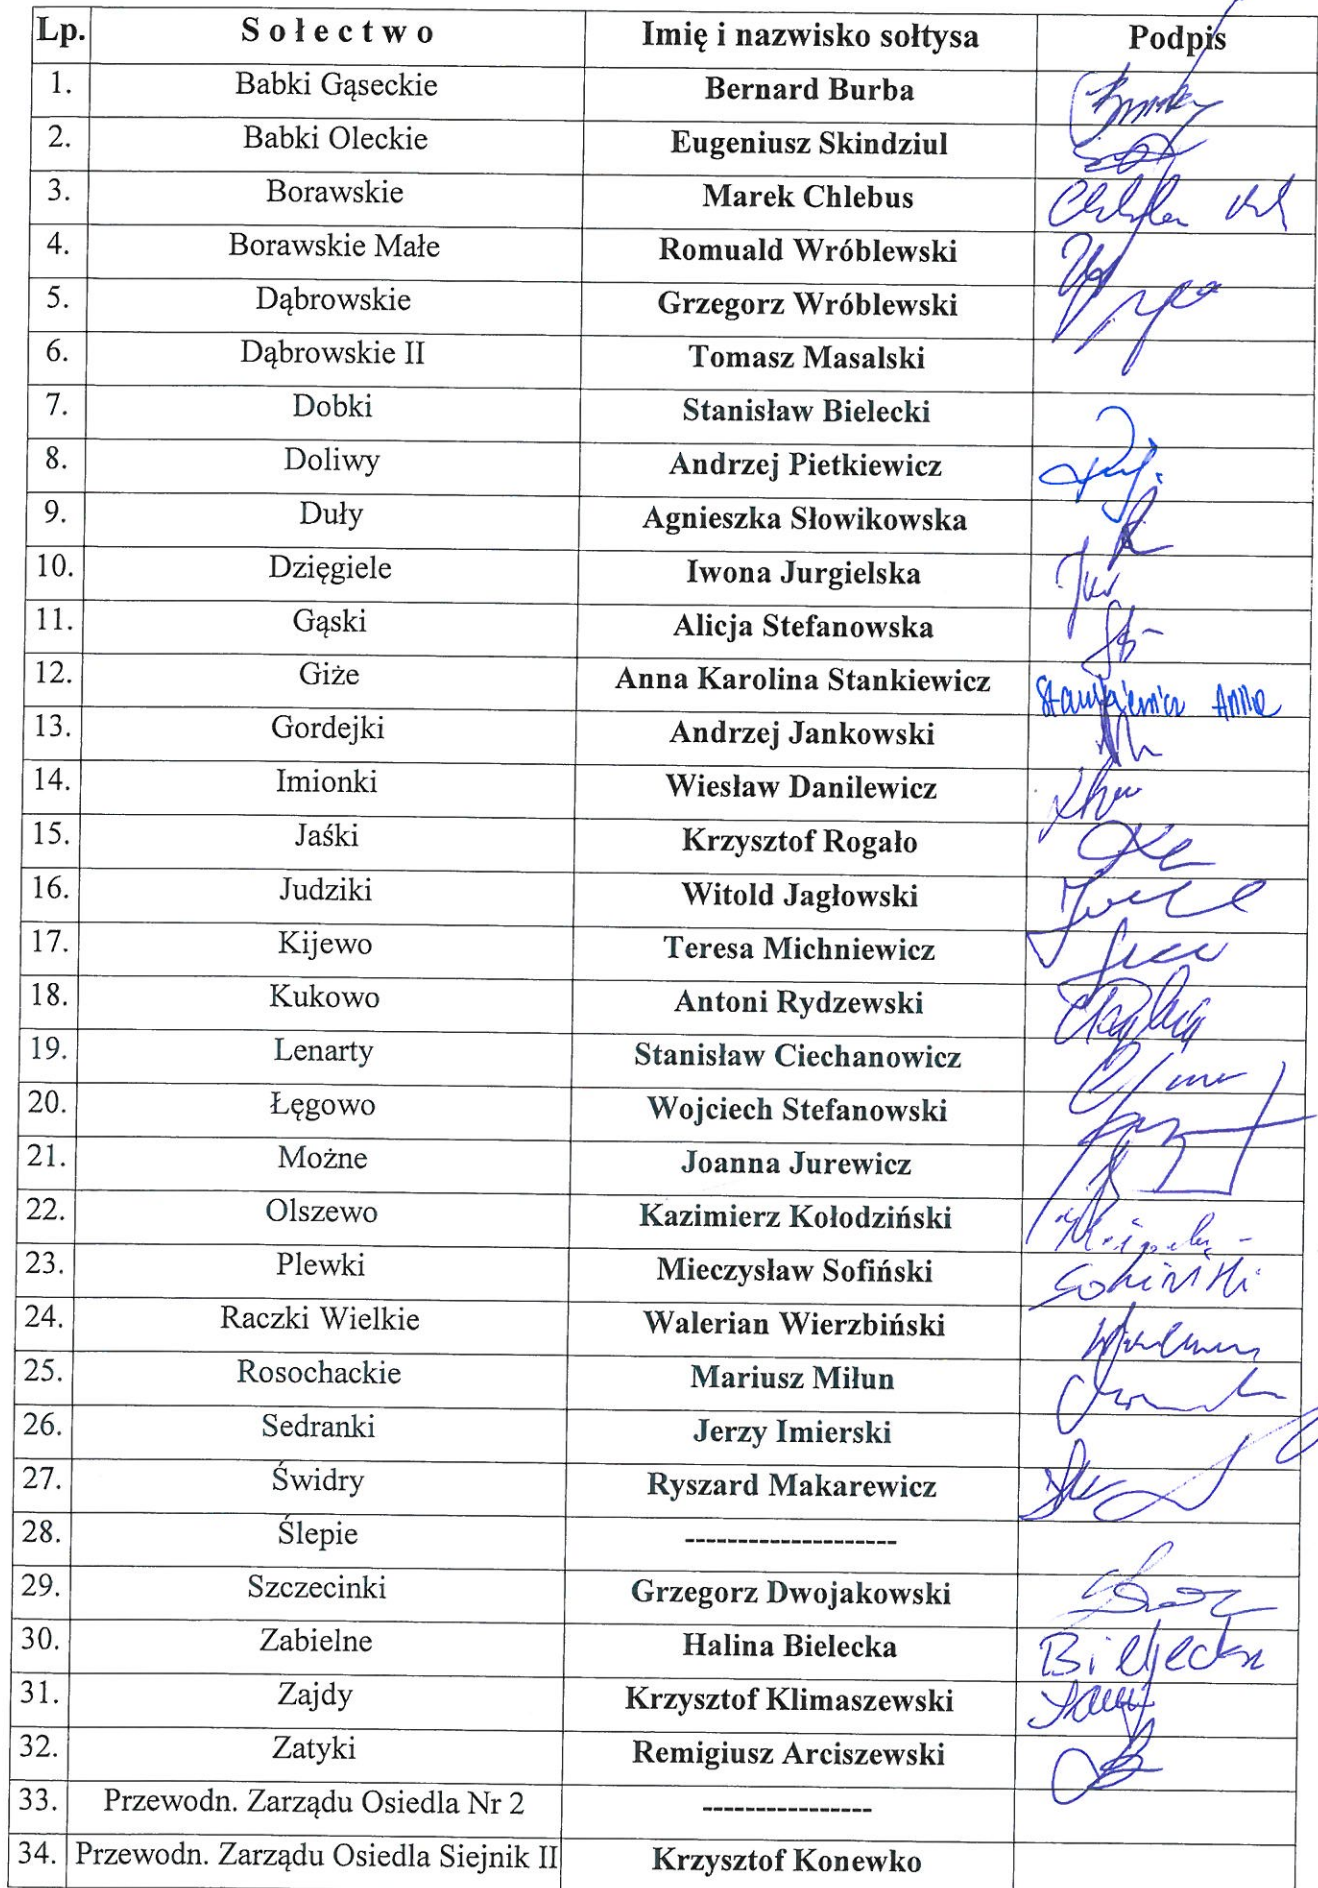 Lp. Sołectwo Imię i nazwisko sołtysa Podpis
1. Babki Gąseckie Bernard Burba
2. Babki Oleckie Eugeniusz Skindziul
3. Borawskie Marek Chlebus
4. Borawskie Małe Romuald Wróblewski
5. Dąbrowskie Grzegorz Wróblewski
6. Dąbrowskie II Tomasz Masalski
7. Dobki Stanisław Bielecki
8. Doliwy Andrzej Pietkiewicz
9. Duły Agnieszka Słowikowska
10. Dzięgiele Iwona Jurgielska
11. Gąski Alicja Stefanowska
12. Giże Anna Karolina Stankiewicz Stankiewicz Anna
13. Gordejki Andrzej Jankowski
14. Imionki Wiesław Danilewicz
15. Jaśki Krzysztof Rogało
16. Judziki Witold Jagłowski
17. Kijewo Teresa Michniewicz
18. Kukowo Antoni Rydzewski
19. Lenarty Stanisław Ciechanowicz
20. Łęgowo Wojciech Stefanowski
21. Możne Joanna Jurewicz
22. Olszewo Kazimierz Kołodziński
23. Plewki Mieczysław Sofiński
24. Raczki Wielkie Walerian Wierzbiński
25. Rosochackie Mariusz Miłun
26. Sedranki Jerzy Imierski
27. Świdry Ryszard Makarewicz
28. Ślepie --------------------
29. Szczecinki Grzegorz Dwojakowski
30. Zabielne Halina Bielecka Bielecka
31. Zajdy Krzysztof Klimaszewski
32. Zatyki Remigiusz Arciszewski
33. Przewodn. Zarządu Osiedla Nr 2 ----------------
34. Przewodn. Zarządu Osiedla Siejnik II Krzysztof Konewko